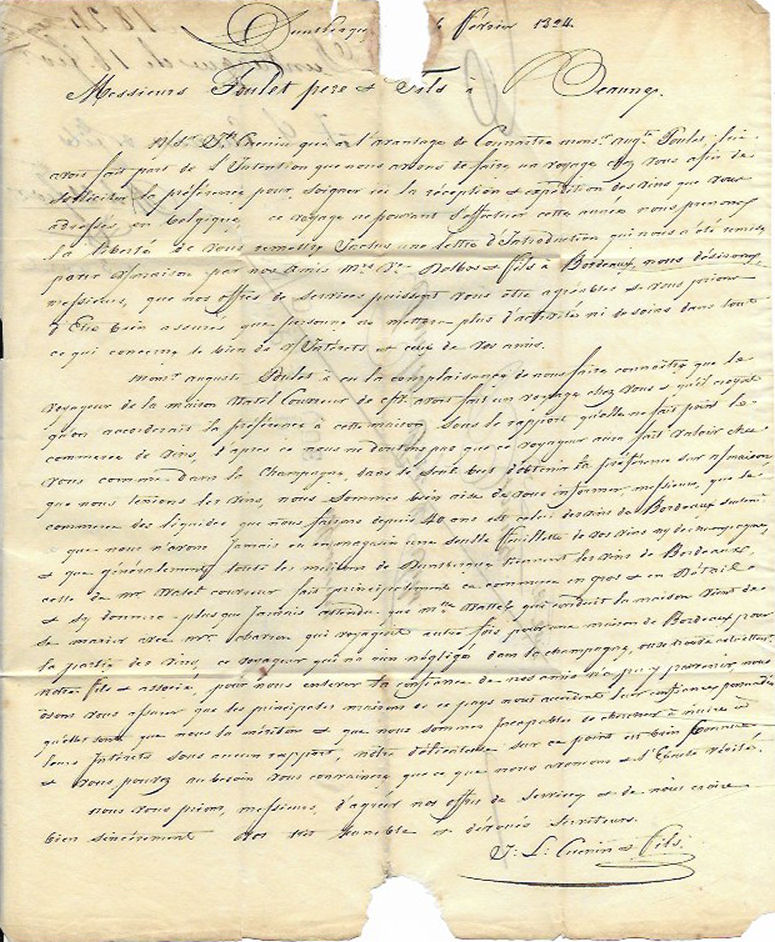 Dunkerque 6 février 1824.
Messieurs Poulet pere & Fils à Beaune.
qui a l'avantage de Connaître mons.r aug.te Poulet, lui
avois fait part de l'Intention que nous avons de faire un voyage chez vous afin de
solliciter la préférence pour soigner ici la réception & expédition des vins que vous
adressés en Belgique, ce voyage ne pouvant s'effectuer cette année nous prenons
la liberté de vous remettre Inclus une lettre d'Introduction qui nous a été remise
par nos amis & Fils à Bordeaux, nous désirons,
messieurs, que nos offres de services puissent vous être agréables & vous prions
d'Etre bien assurés que personne ne mettra plus d'activité ni de soins dans tout
ce qui concerne le bien de v/ Intérêts & ceux de vos amis.
Mons.r auguste Poulet à eu la complaisance de nous faire connaître que le
voyageur de la maison avoit fait un voyage chez vous & qu'il croyoit
qu'on accorderait la préférence à cette maison sous le rapport qu'elle ne fait point le
commerce de vins, d'après ce nous ne doutons pas que ce voyageur aura fait valoir chez
vous comme dans la Champagne, dans le seul but d'obtenir la préférence sur n/ maison
que nous tenions les vins, nous sommes bien aise de vous informer, messieurs, que le
commerce des liquides que nous faisons depuis 40 ans est celui des vins de Bordeaux
que nous n'avons jamais eu en magasin une seule feuillette de vos vins ny de champagne,
& que généralement toute les maisons de Dunkerque tiennent les vins de Bordeaux,
celle de mr fait principalement ce commerce en gros & en Détail
& s'y donnera plus que jamais attendu que qui conduit la maison vient de
se marier avec mr. qui voyageait autre fois pour une maison de Bordeaux pour
la partie des vins, ce voyageur qui n'a rien négligé dans la champagne,
notre fils & associé, pour nous enlever la confiance de nos amis n'a pu y parvenir nous
osons vous assurer que les principales maisons de ce pays nous accordent leur confiance persuadés
qu'elles sont que nous la méritons & que nous sommes Incapables de chercher à nuire à
leurs Intérêts sous aucun rapport, notre délicatesse sur ce point est bien connue
& vous pouvez au besoin vous convaincre que ce que nous avançons & l'Exacte vérité.
nous vous prions, messieurs, d'agréer nos offres de services & de nous croire
bien sincèrement Vos très humbles & dévoués serviteurs.
J: L: Cuenin & Fils.